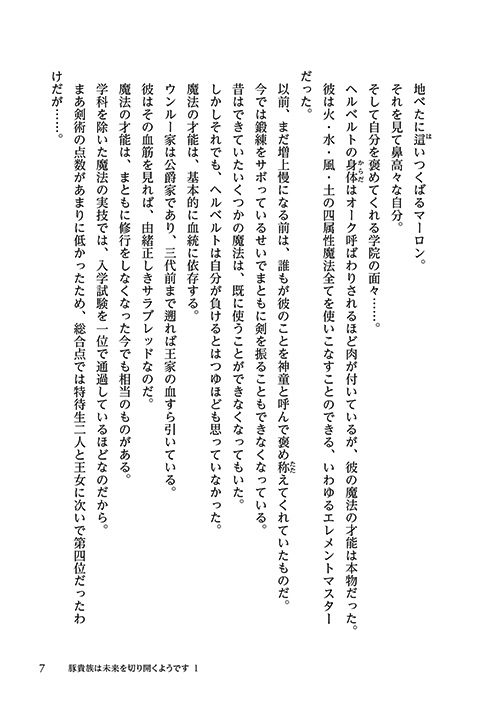 地べたに這いつくばるマーロン。
それを見て鼻高々な自分。
そして自分を褒めてくれる学院の面々……。
ヘルベルトの身体はオーク呼ばわりされるほど肉が付いているが、彼の魔法の才能は本物だった。
彼は火・水・風・土の四属性魔法全てを使いこなすことのできる、いわゆるエレメントマスター
だった。
以前、まだ増上慢になる前は、誰もが彼のことを神童と呼んで褒め称えてくれていたものだ。
今では鍛練をサボっているせいでまともに剣を振ることもできなくなっている。
昔はできていたいくつかの魔法は、既に使うことができなくなってもいた。
しかしそれでも、ヘルベルトは自分が負けるとはつゆほども思っていなかった。
魔法の才能は、基本的に血統に依存する。
ウンルー家は公爵家であり、三代前まで遡れば王家の血すら引いている。
彼はその血筋を見れば、由緒正しきサラブレッドなのだ。
魔法の才能は、まともに修行をしなくなった今でも相当のものがある。
学科を除いた魔法の実技では、入学試験を一位で通過しているほどなのだから。
まあ剣術の点数があまりに低かったため、総合点では特待生二人と王女に次いで第四位だったわ
けだが……。
7 豚貴族は未来を切り開くようです 1